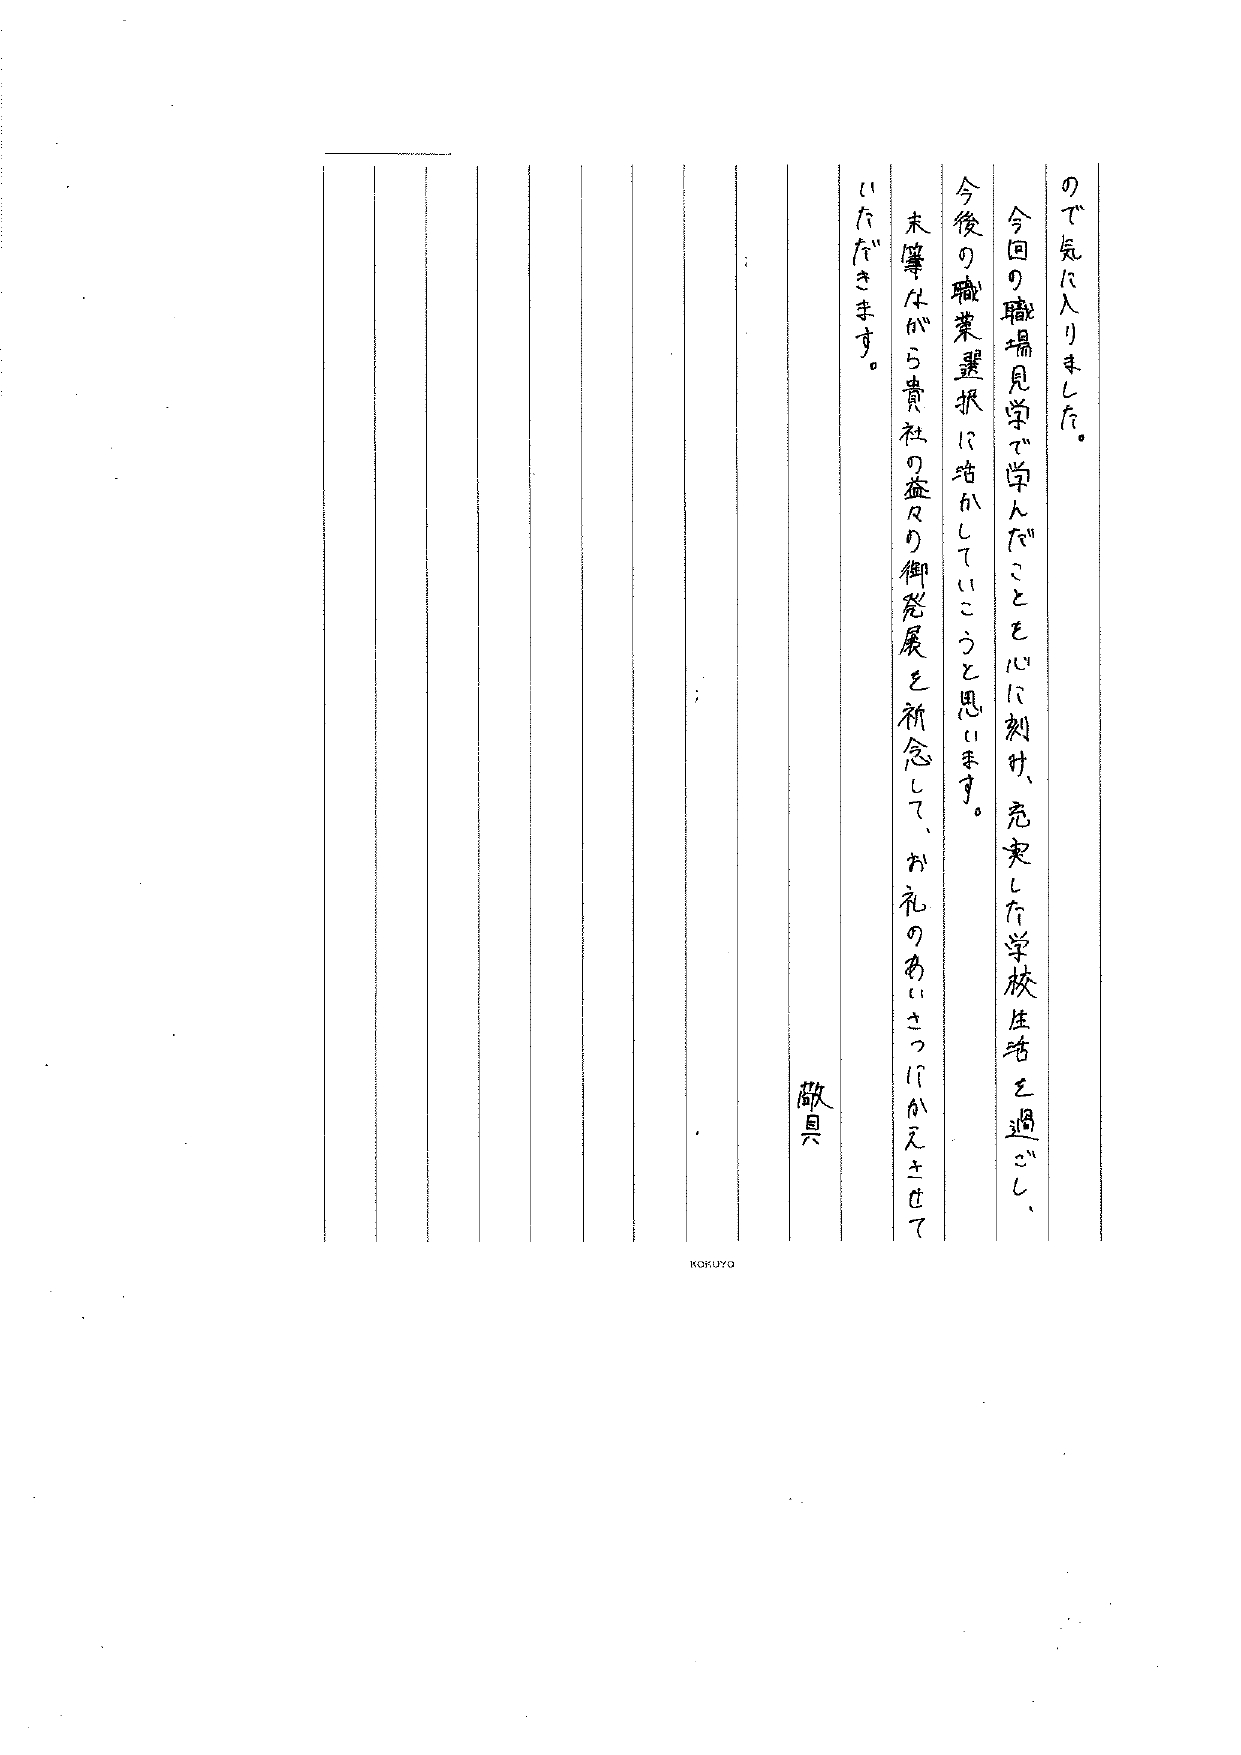 ので気に入りました。
今回の職場見学で学んだことを心に刻み、充実した学校生活を過ごし、
今後の職業選択に活かしていこうと思います。
末筆ながら貴社の益々の御発展を祈念して、お礼のあいさつにかえさせて
いただきます。
敬具
KOKUYO